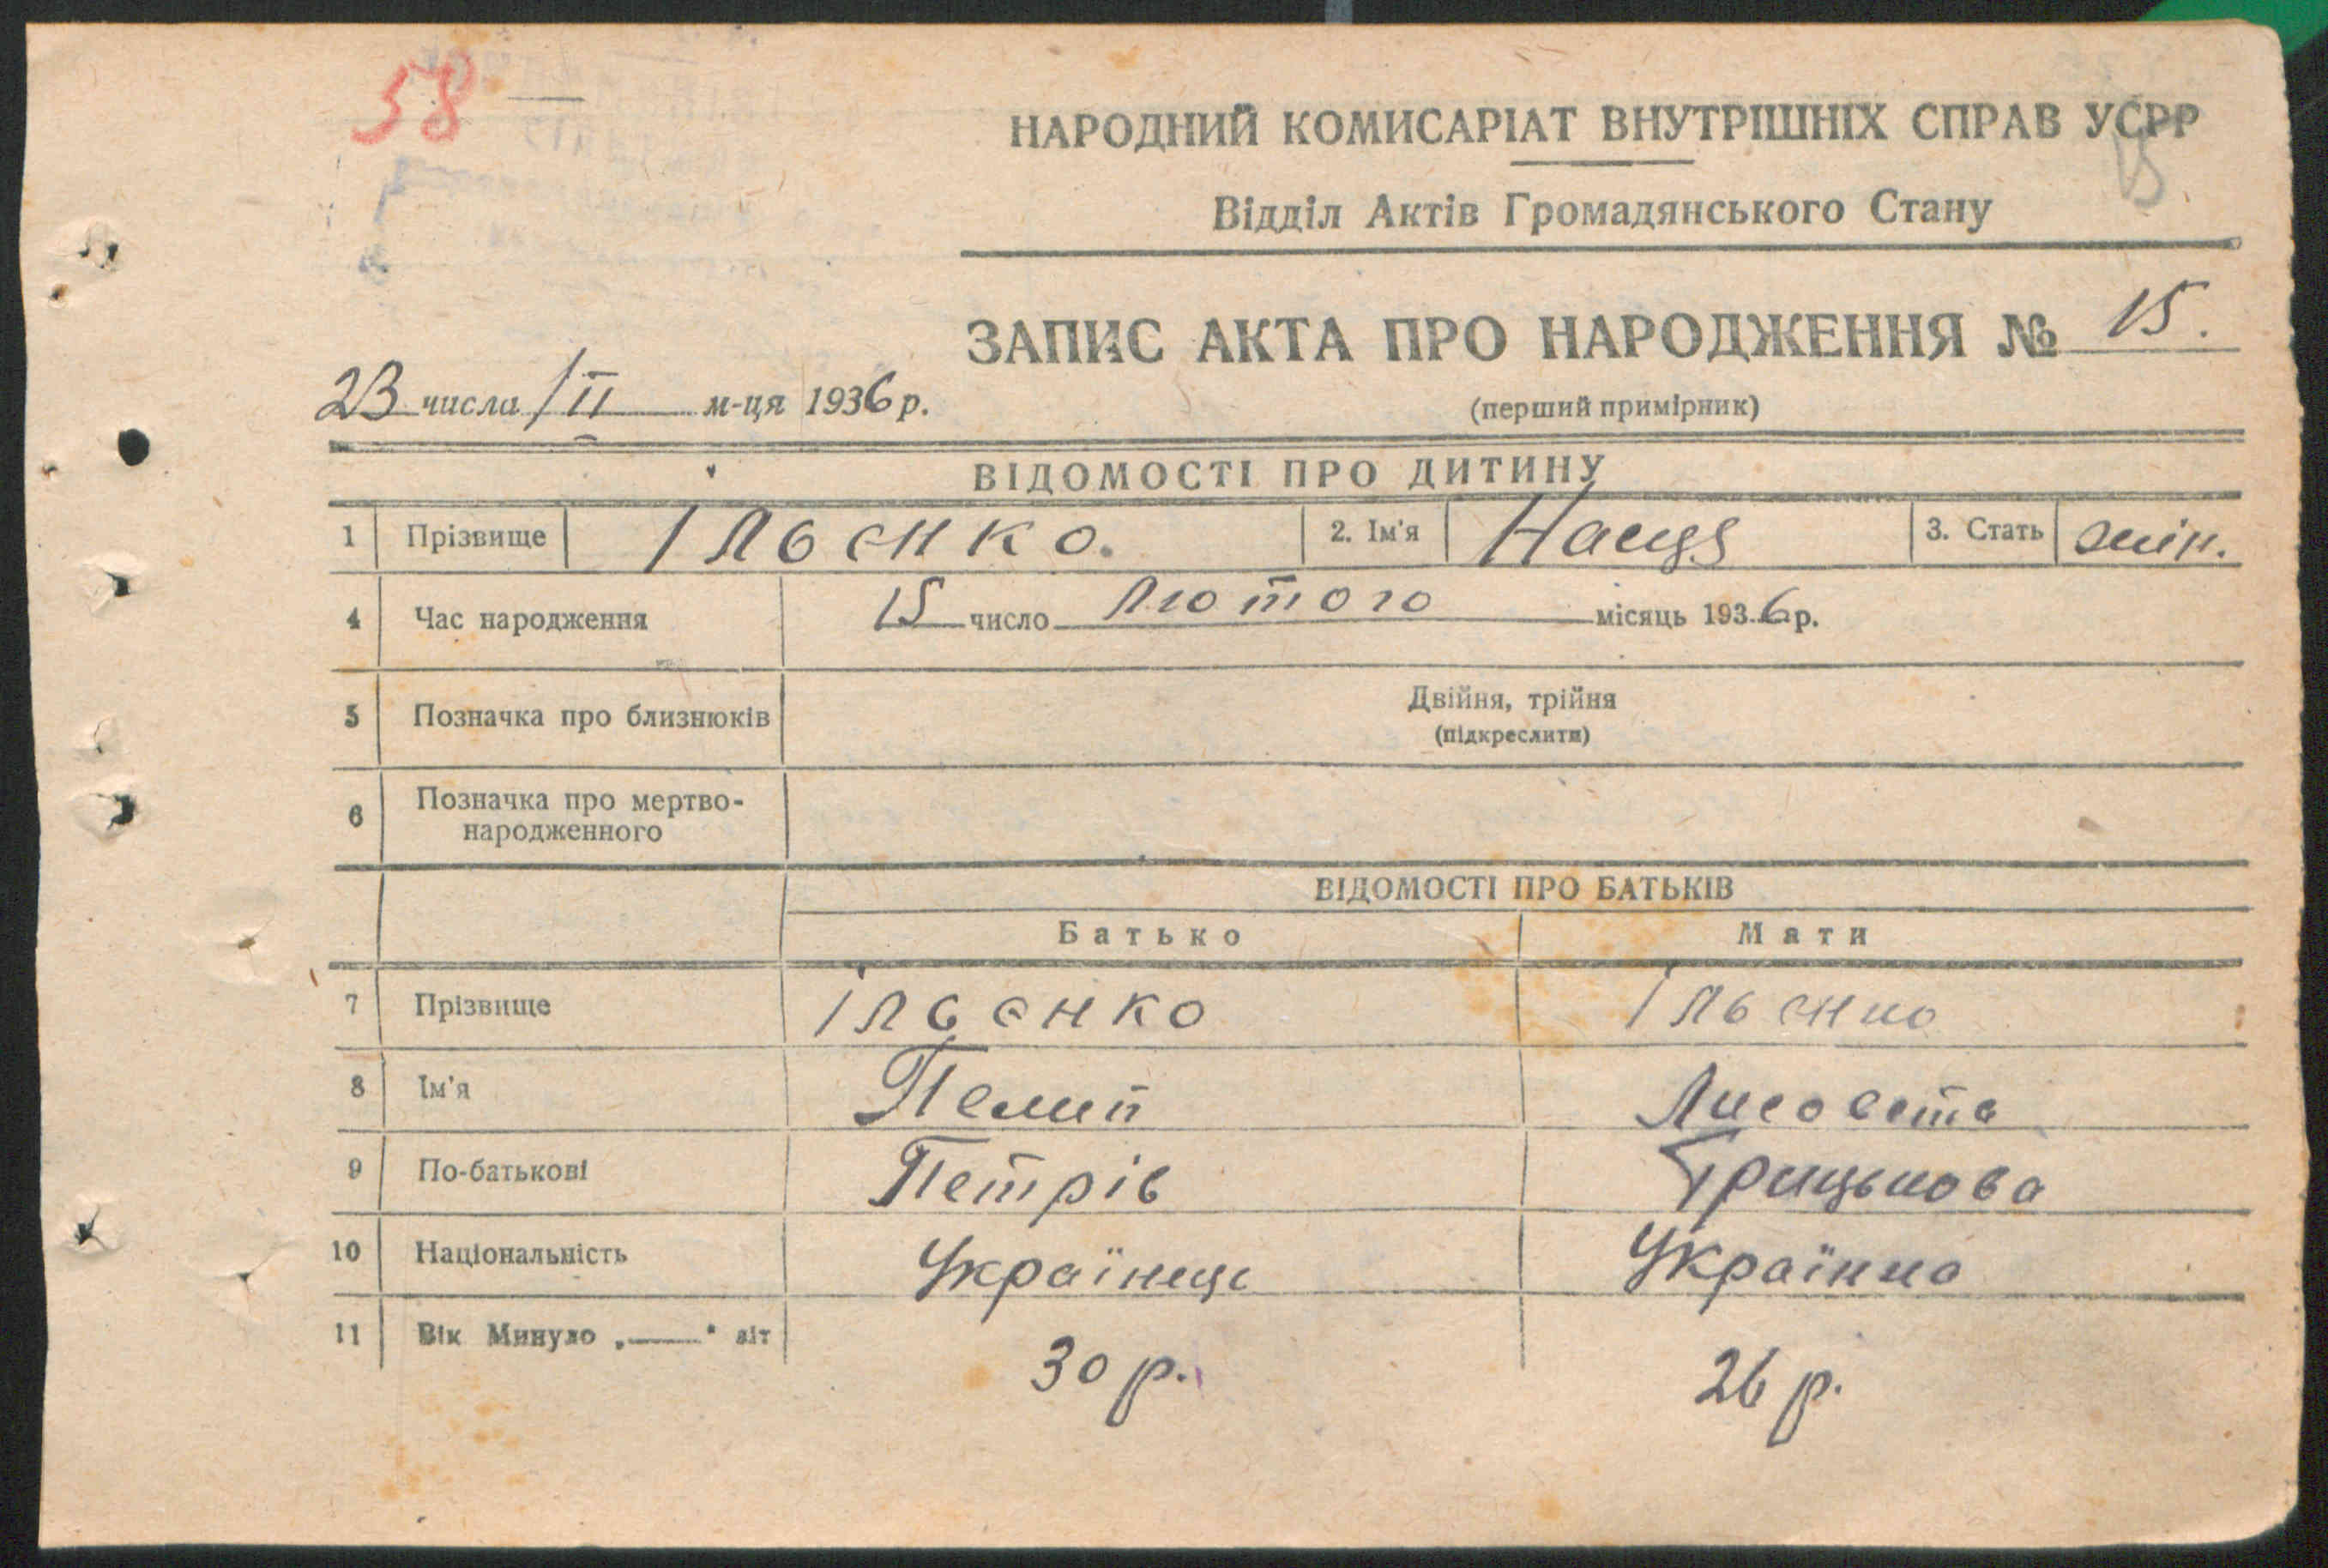 58
НАРОДНИЙ КОМИСАРІАТ ВНУТРІШНІХ СПРАВ УСРР
15
Відділ Актів Громадянського Стану
ЗАПИС АКТА ПРО НАРОДЖЕННЯ № 15.
23 числа /II м-ця 1936 р.
(перший примірник)
ВІДОМОСТІ ПРО ДИТИНУ
1 Прізвище Ільєнко. 2. Ім'я Нацця 3. Стать жін.
4 Час народження 15 число Лютого місяць 1936 р.
5 Позначка про близнюків Двійня, трійня
(підкреслити)
6 Позначка про мертво-
народженного
ВІДОМОСТІ ПРО БАТЬКІВ
Батько Мати
7 Прізвище Ільєнко Ільєнко
8 Ім'я Пелип Лисовета
9 По-батькові Петрів Грицькова
10 Національність Українець Українка
11 Вік Минуло „—“ літ 30 р. 26 р.